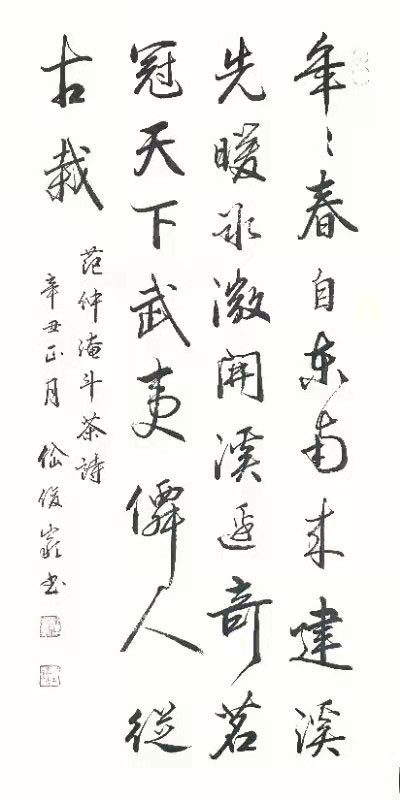 年〻春自东南来建溪
先暖冰微開溪邊奇茗
冠天下武夷僊人從
古栽
范仲淹斗茶詩
辛丑正月 徐俊巖书